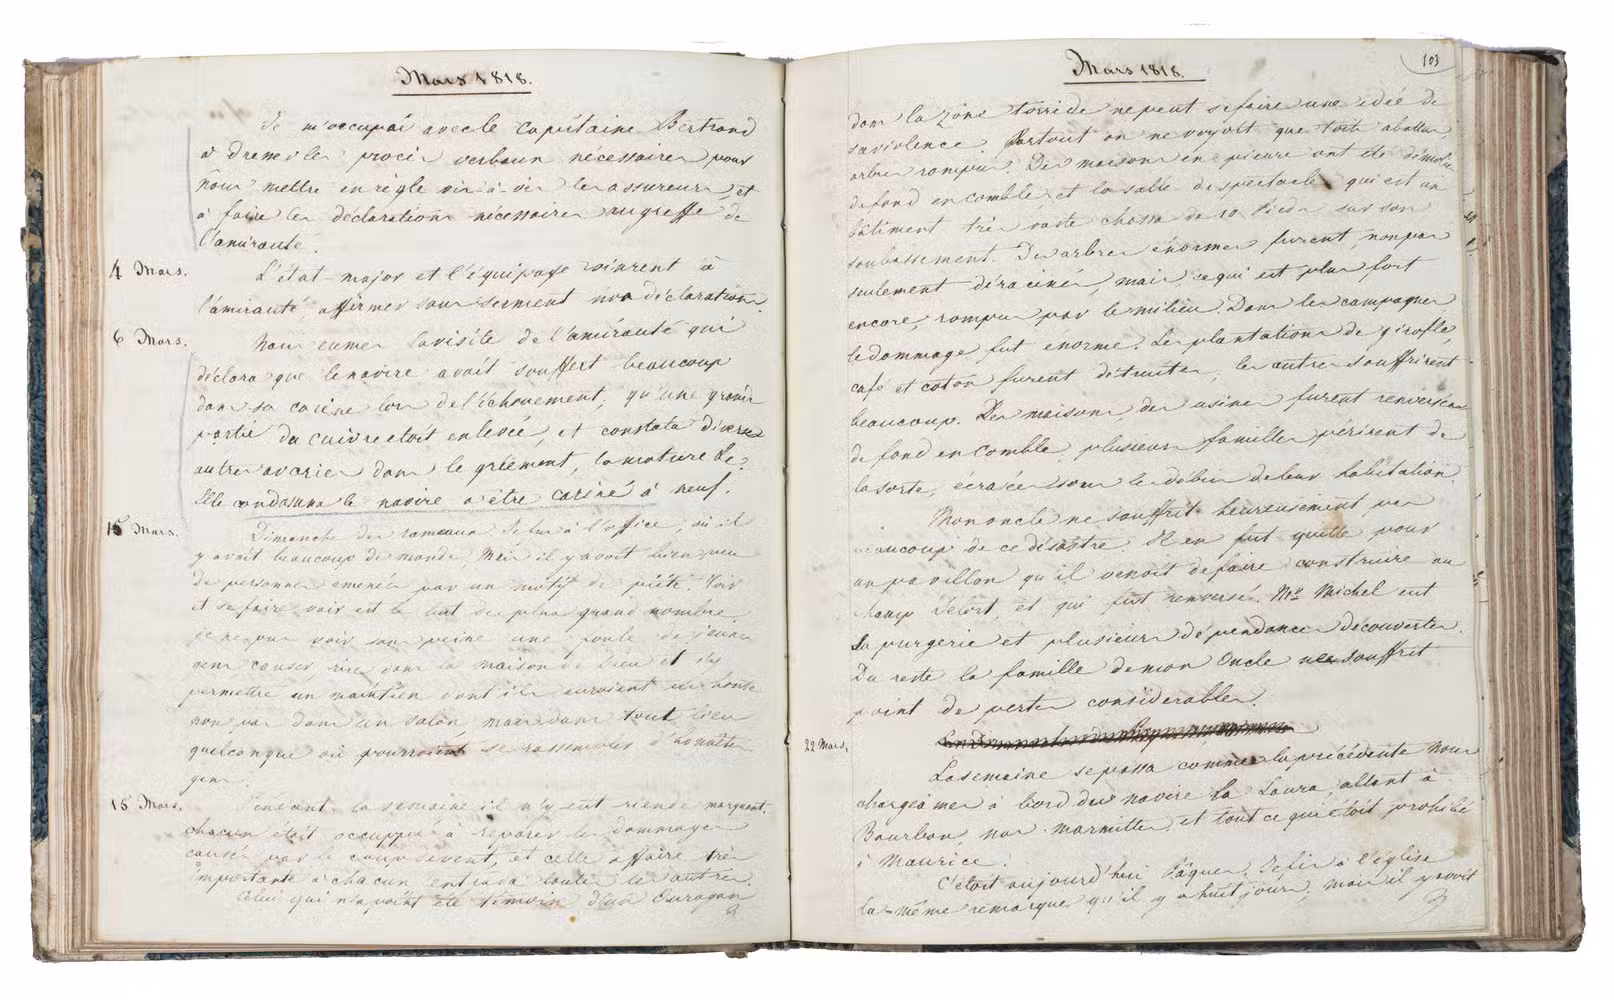 Mars 1818.
Je m'occupai avec le capitaine Bertrand
à dresser les procès verbaux nécessaires pour
nous mettre en règle vis à vis les assureurs, et
à faire les déclarations nécessaires au greffe de
l'amirauté.
4 Mars.
L'état-major et l'équipage vinrent à
l'amirauté affirmer sous serment nos déclarations.
6 Mars.
Nous eumes la visite de l'amirauté qui
déclara que le navire avait souffert beaucoup
dans sa carène lors de l'échouement, qu'une grande
partie du cuivre étoit enlevée, et constata diverses
autres avaries dans le gréement, la mature &c.
Elle condamna le navire a être caréné à neuf.
15 Mars.
Dimanche des rameaux. Je fus à l'office, où il
y avait beaucoup de monde, Mais il y avoit bien peu
de personnes amenées par un motif de piété. Voir
et se faire voir est le but du plus grand nombre.
je ne pus voir sans peine une foule de jeunes
gens causer, rire dans la maison de Dieu et s'y
permettre un maintien dont ils auroient eu honte
non pas dans un salon mais dans tout lieu
quelconque où pourroient se rassembler d'honnêtes
gens.
15 Mars.
Pendant la semaine il n'y eut rien de marquant.
chacun étoit occuppé à réparer les dommages
causés par le coup de vent, et cette affaire très
importante à chacun entrava toutes les autres.
Celui qui n'a point été témoin d'un Ouragan
Mars 1818.
103
dans la zône torride ne peut se faire une idée de
sa violence. Partout on ne voyoit que toits abattus
arbres rompus. Des maisons en pierre ont été démolies
de fond en comble et la salle de spectacle qui est un
bâtiment très vaste chassa de 10 Pieds sur son
soubassement. Des arbres énormes furent, non pas
seulement déracinés, mais, ce qui est plus fort
encore, rompus par le milieu. Dans les campagnes
le dommage fut énorme. Les plantations de girofle,
café et coton furent détruites, les autres souffrirent
beaucoup. Les maisons des usines furent renversées
de fond en comble, plusieurs familles périrent de
la sorte, écrasées sous les débris de leur habitation.
Mon oncle ne souffrit heureusement pas
beaucoup de ce désastre. Il en fut quitte pour
un pavillon qu'il venoit de faire construire au
champ Delort, et qui fut renversé. Mr. Michel eut
la purgerie et plusieurs dépendances découvertes.
Du reste la famille de mon Oncle ne souffrit
point de pertes considérables.
22 Mars.
La semaine se passa comme la précédente Nous
chargeâmes à bord du navire la Laura, allant à
Bourbon, nos marmittes, et tout ce qui étoit prohibé
à Maurice.
C'étoit aujourd'hui Pâques. Je fis à l'église
la même remarque qu'il y a huit jours, mais il y avoit